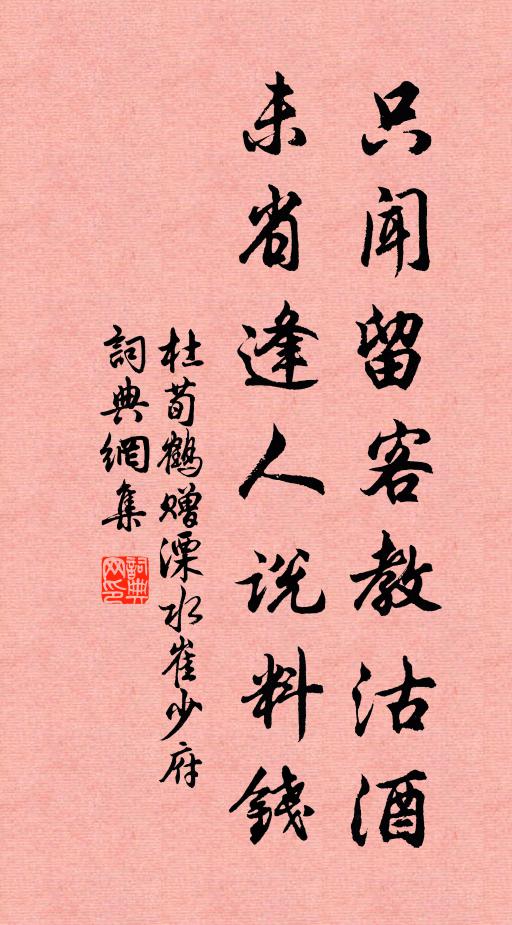 只聞留客教沽酒
未省逢人説料錢
杜荀鶴贈溧水崔少府
詞典網集
詞典网印